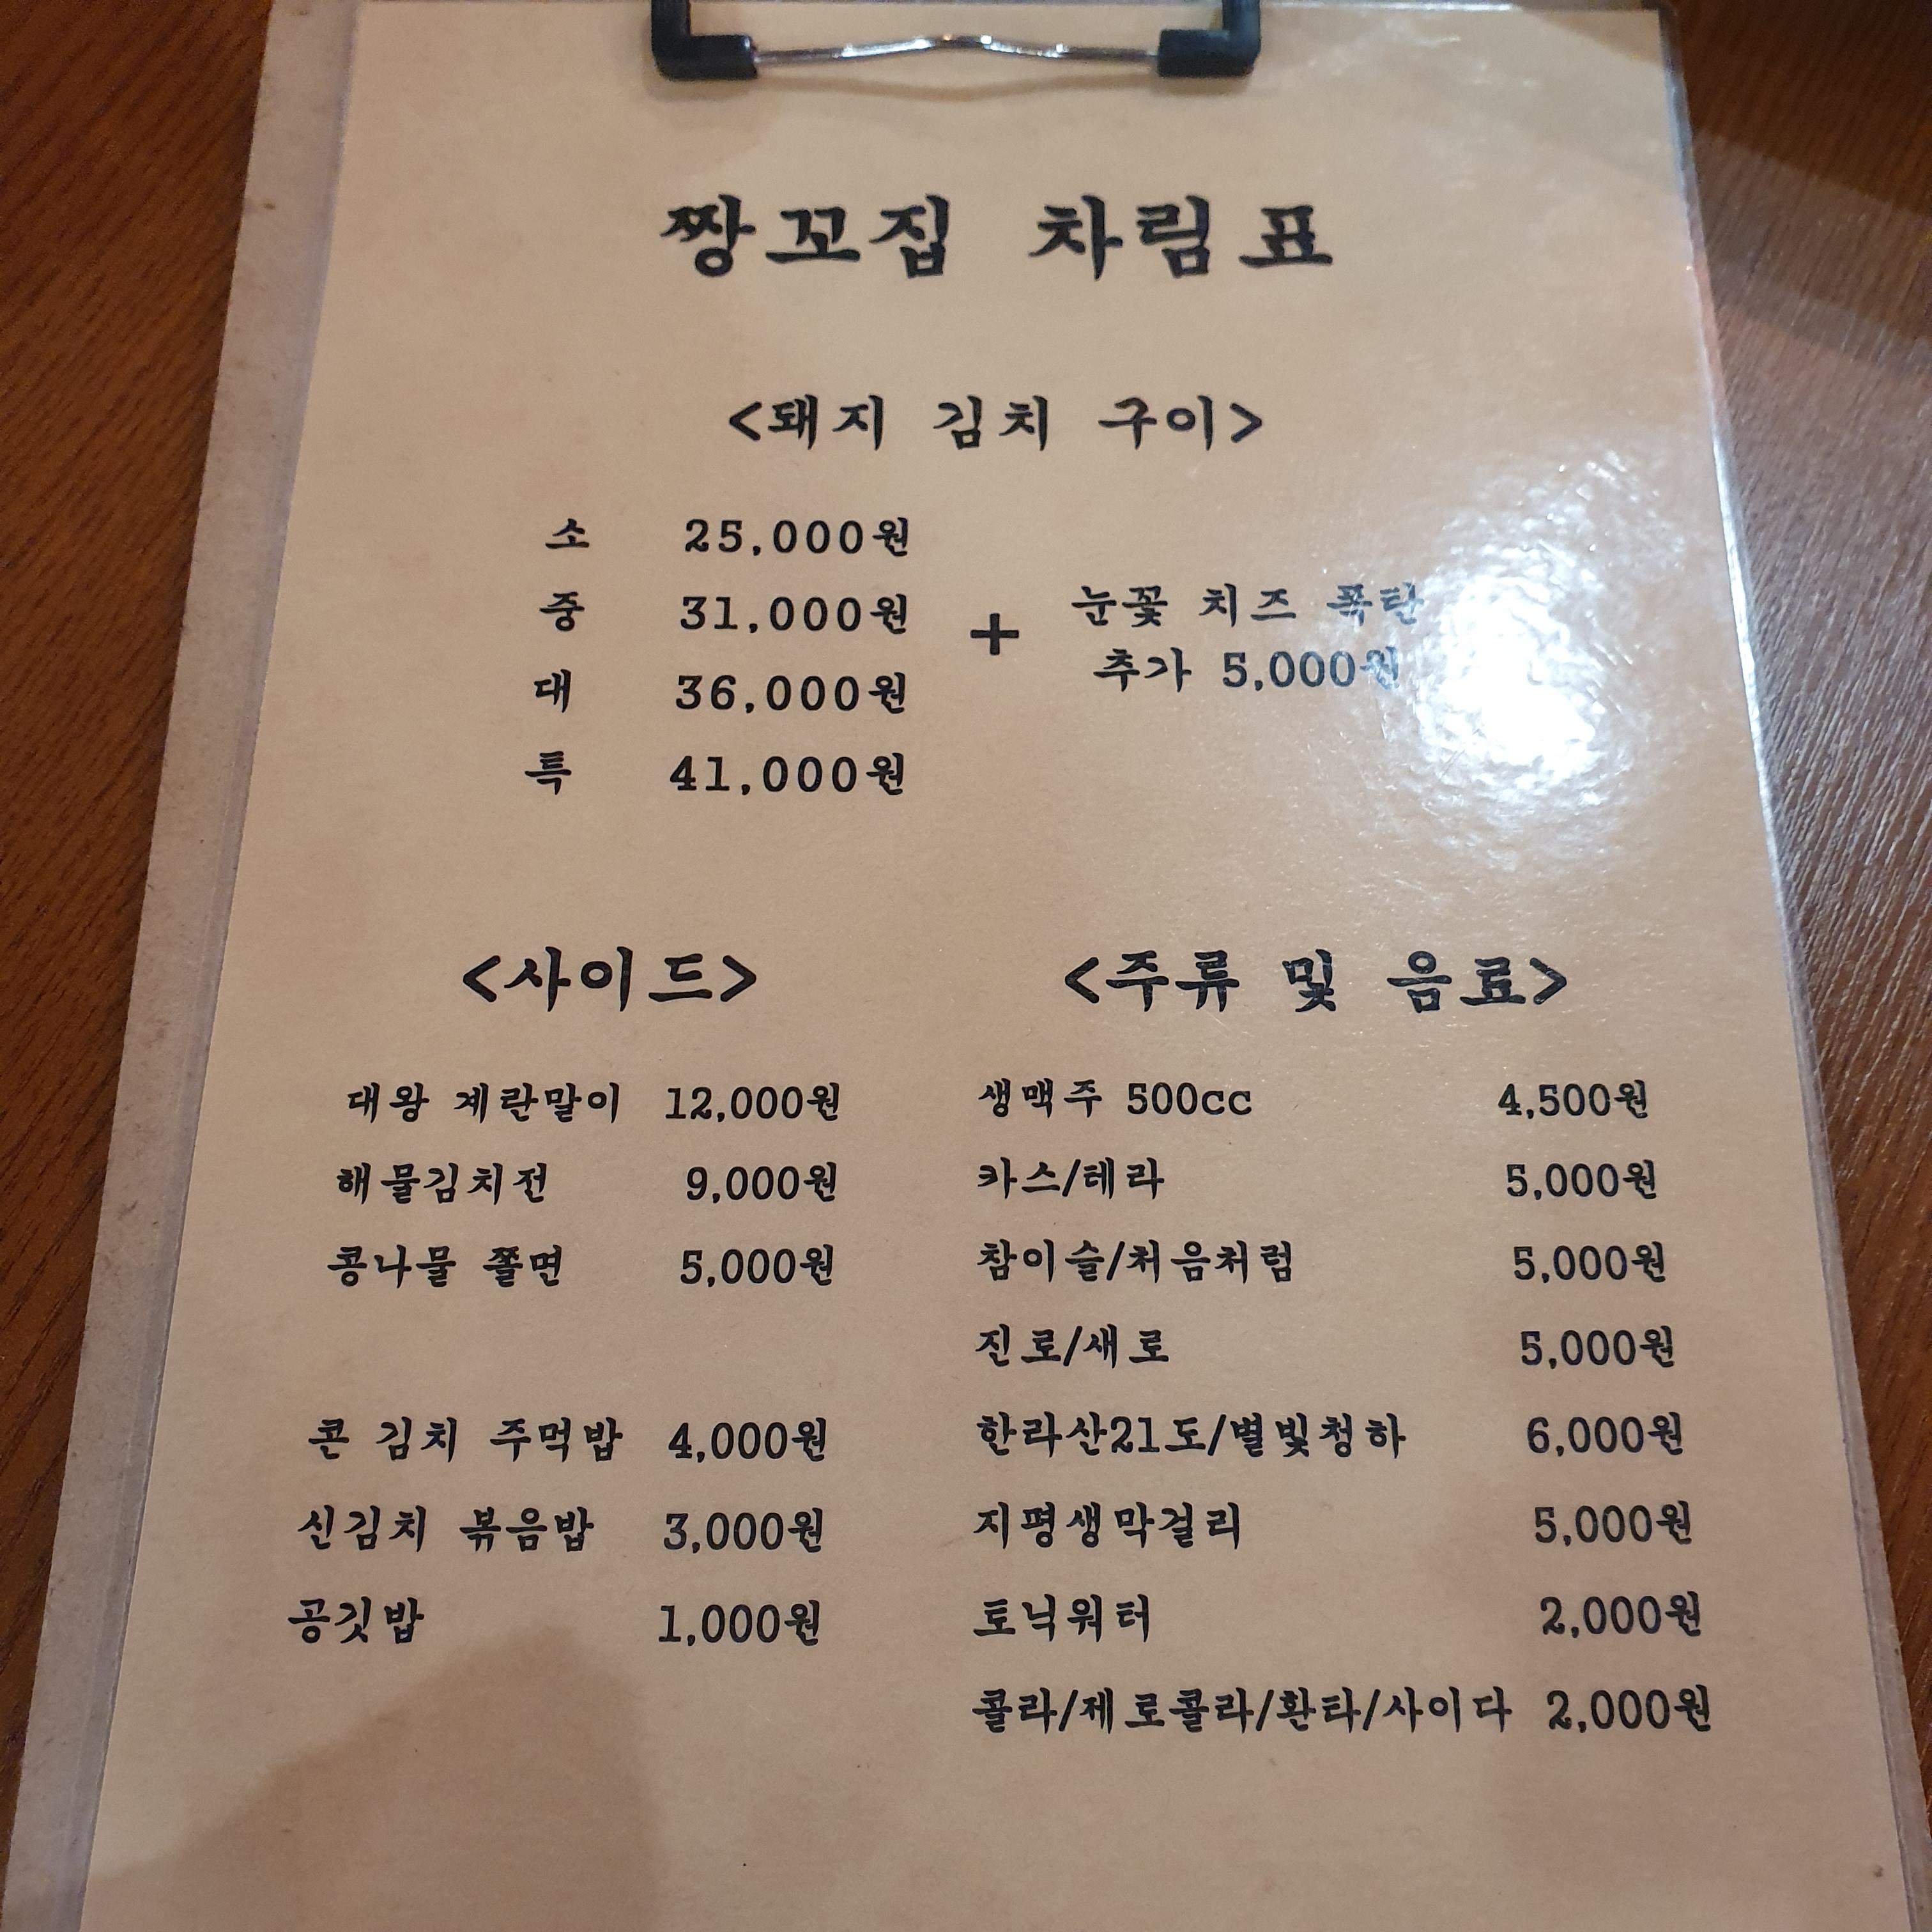 짱꼬집 차림표
<돼지 김치 구이>
소 25,000원
중 31,000원
대 36,000원
특 41,000원
+ 눈꽃 치즈 폭탄
추가 5,000원
<사이드>
대왕 계란말이 12,000원
해물김치전 9,000원
콩나물 쫄면 5,000원
콘 김치 주먹밥 4,000원
신김치 볶음밥 3,000원
공깃밥 1,000원
<주류 및 음료>
생맥주 500cc 4,500원
카스/테라 5,000원
참이슬/처음처럼 5,000원
진로/새로 5,000원
한라산21도/별빛청하 6,000원
지평생막걸리 5,000원
토닉워터 2,000원
콜라/제로콜라/환타/사이다 2,000원